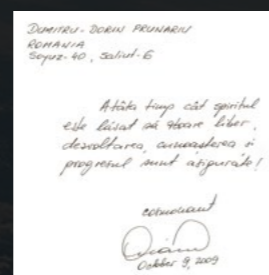 DUMITRU-DORIN PRUNARIU
ROMANIA
Soyuz-40, Saliut-6
Atâta timp cât spiritul
este lăsat să zboare liber,
dezvoltarea, cunoașterea și
progresul sunt asigurate!
cosmonaut
October 9, 2009